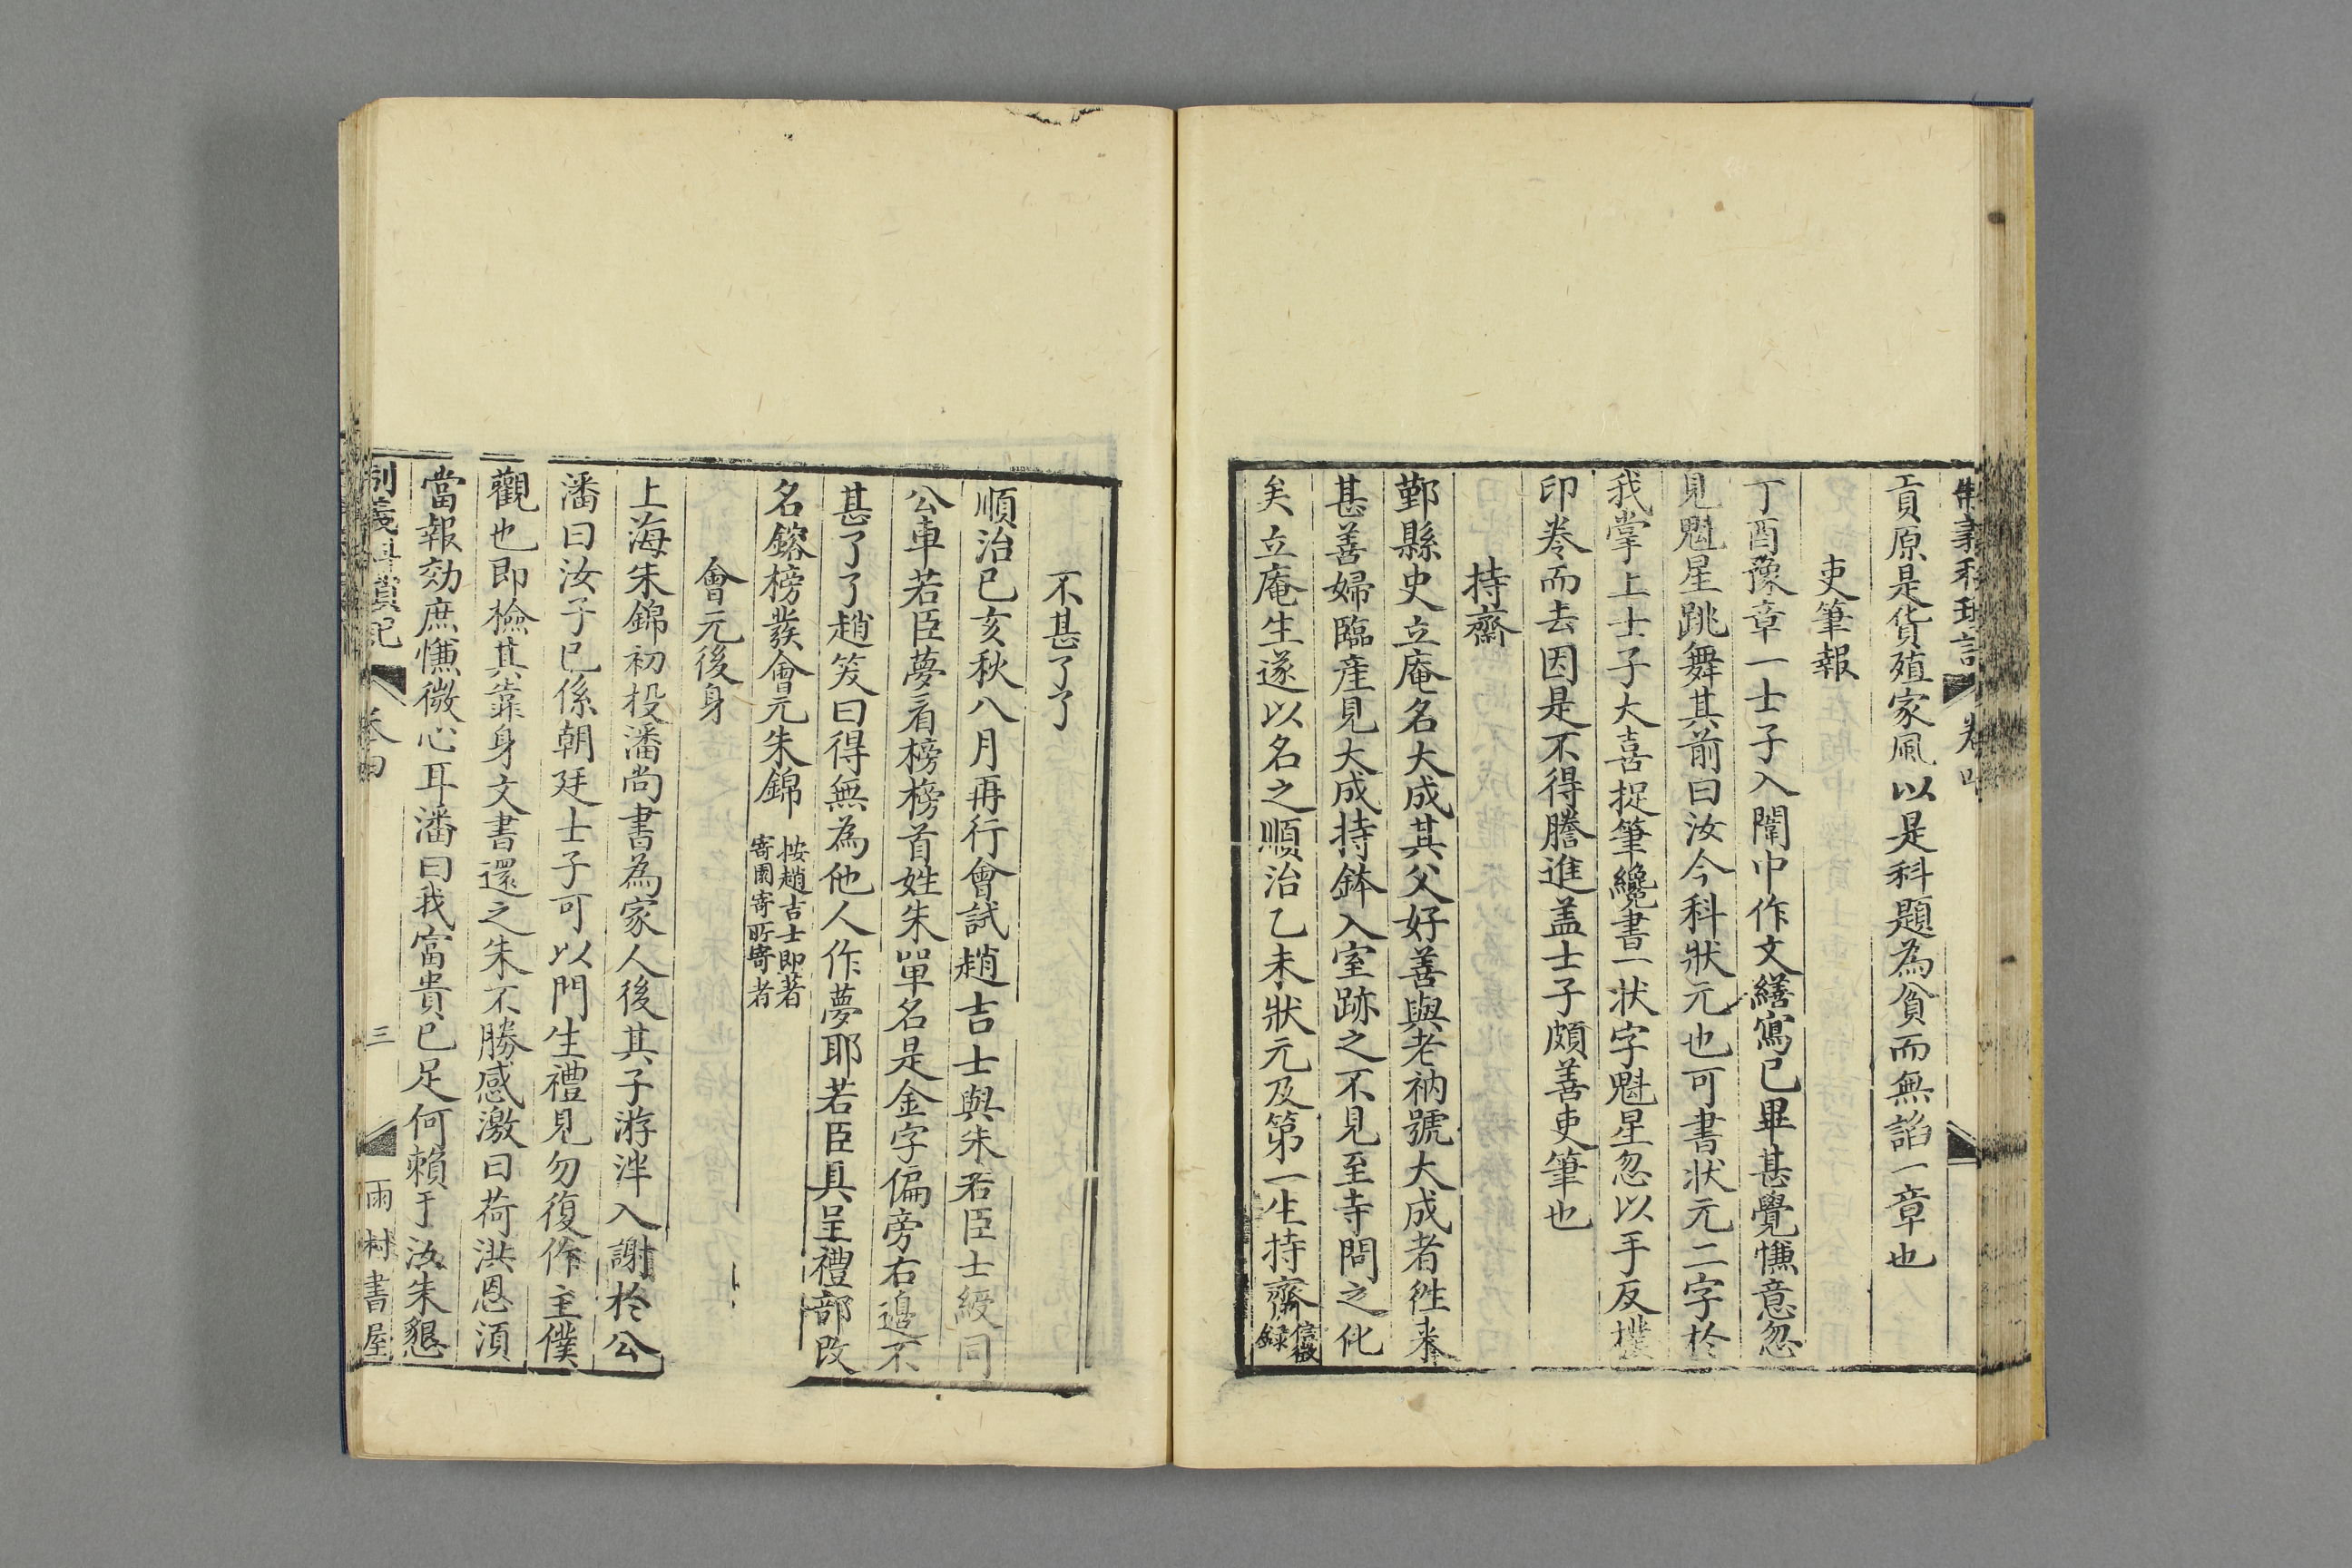 貢原是貨殖家風以是科題為貧而無諂一章也
吏筆報
丁酉豫章一士子入闈中作文繕寫已畢甚覺慊意忽
見魁星跳舞其前曰汝今科狀元也可書狀元二字於
我掌上士子大喜捉筆纔書一状字魁星忽以手反撲
印卷而去因是不得謄進盖士子頗善吏筆也
持齋
鄞縣史立庵名大成其父好善與老衲號大成者徃来
甚善婦臨産見大成持鉢入室跡之不見至寺問之化
矣立庵生遂以名之順治乙未狀元及第一生持齋信徵
録
不甚了了
順治己亥秋八月再行會試趙吉士與朱若臣士綬同
公車若臣夢看榜榜首姓朱單名是金字偏旁右邉不
甚了了趙笑曰得無為他人作夢耶若臣具呈禮部改
名鎔榜發會元朱錦按趙吉士即著
寄園寄所寄者
會元後身
上海朱錦初投潘尚書為家人後其子游泮入謝於公
潘曰汝子已係朝廷士子可以門生禮見勿復作主僕
觀也即檢其靠身文書還之朱不勝感激曰荷洪恩湏
當報効庶慊微心耳潘曰我富貴已足何賴于汝朱懇
制義科瑣記 卷四 三 雨村書屋